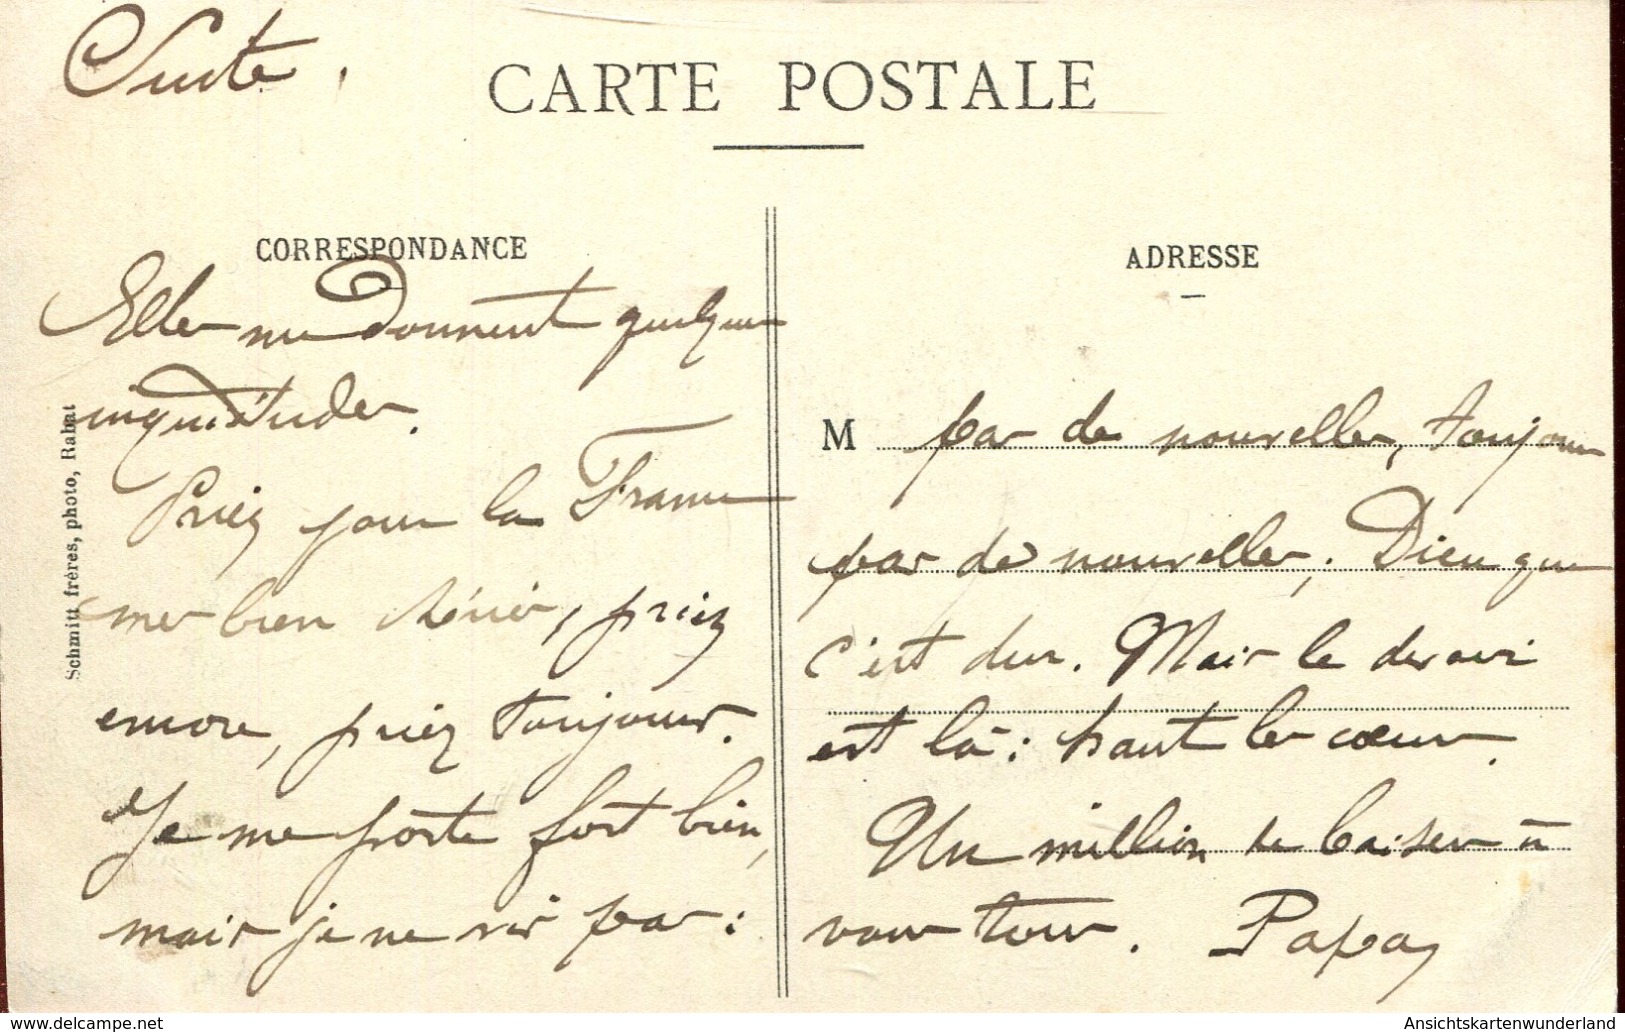 Suite.
CARTE POSTALE
CORRESPONDANCE
Elles me donnent quelques
inquiétudes.
Priez pour la France
mes bien chéries, priez
encore, priez toujours.
Je me porte fort bien,
mais je ne vis pas :
Schmitt frères, photo, Rabat
ADRESSE
M pas de nouvelles, toujours
pas de nouvelles ; Dieu que
c'est dur. Mais le devoir
est là : haut les cœurs.
Un million de baisers à
vous tous. Papa
AnsichtskartenWunderland